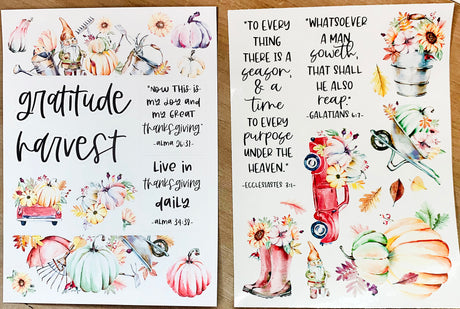 gratitude
harvest
"NOW THIS IS
MY JOY AND
MY GREAT
thanksgiving"
-ALMA 26:37-
Live in
thanksgiving
daily
-ALMA 34:38-
"TO EVERY
THING
THERE IS A
season,
& a
time
TO EVERY
purpose
UNDER THE
HEAVEN."
-ECCLESIASTES 3:1-
"WHATSOEVER
A MAN
soweth,
THAT SHALL
HE ALSO
reap."
-GALATIANS 6:7-